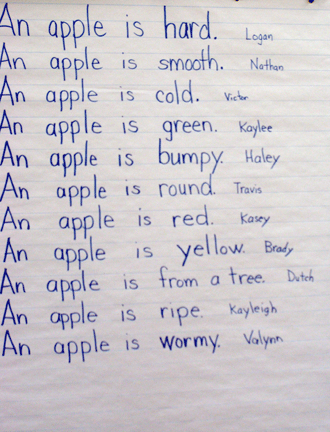 An apple is hard. Logan
An apple is smooth. Nathan
An apple is cold. Victor
An apple is green. Kaylee
An apple is bumpy. Haley
An apple is round. Travis
An apple is red. Kasey
An apple is yellow. Brady
An apple is from a tree. Dutch
An apple is ripe. Kayleigh
An apple is wormy. Valynn